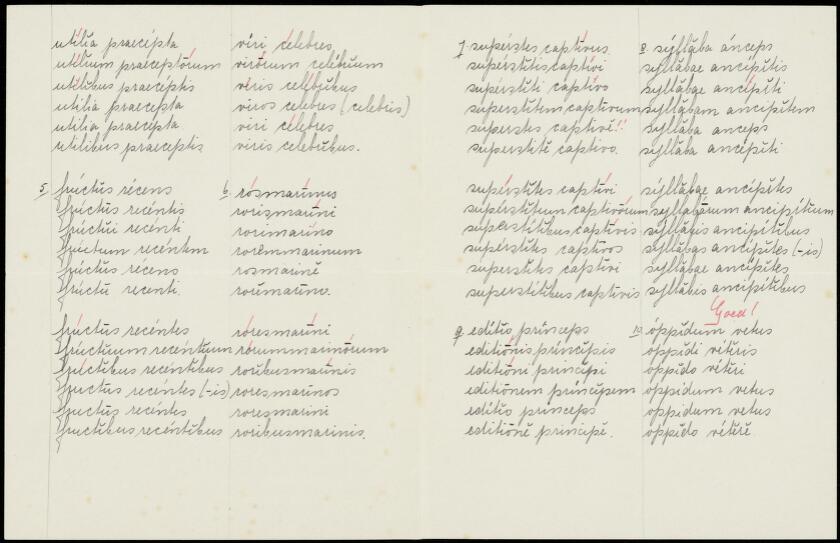 utilia praecepta
utilium praeceptorum
utilibus praeceptis
utilia praecepta
utilia praecepta
utilibus praeceptis
viri celebres
virorum celebrium
viris celebribus
viros celebres (celebris)
viri celebres
viris celebribus.
5. fructus recens
fructūs recentis
fructui recenti
fructum recentem
fructus recens
fructū recenti.
fructūs recentes
fructuum recentium
fructibus recentibus
fructūs recentes (-is)
fructūs recentes
fructibus recentibus
6. rosmarinus
rorismarini
rorimarino
roremmarinum
rosmarine
roremarino.
roresmarini
rorummarinorum
roribusmarinis
roresmarinos
roresmarini
roribusmarinis.
7. superstes captivus
superstitis captivi
superstiti captivo
superstitem captivum
superstes captive!!
superstite captivo.
superstites captivi
superstitum captivorum
superstitibus captivis
superstites captivos
superstites captivi
superstitibus captivis
8. syllaba anceps
syllabae ancipitis
syllabae ancipiti
syllabam ancipitem
syllaba anceps
syllaba ancipiti.
syllabae ancipites
syllabarum ancipitium
syllabis ancipitibus
syllabas ancipites (-is)
syllabae ancipites
syllabis ancipitibus
Goed!
9. editio princeps
editionis principis
editioni principi
editionem principem
editio princeps
editione principe.
10. oppidum vetus
oppidi veteris
oppido veteri
oppidum vetus
oppidum vetus
oppido vetere